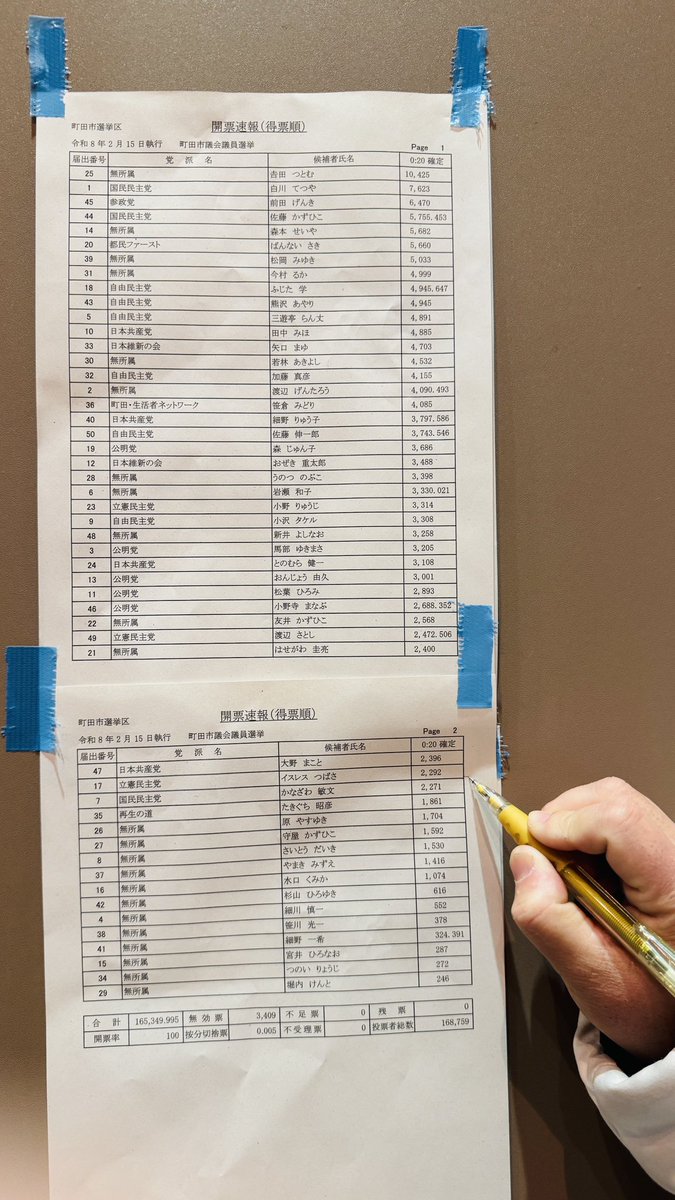 町田市選挙区 開票速報(得票順)
令和8年2月15日執行 町田市議会議員選挙 Page 1
届出番号 党派名 候補者氏名 0:20 確定
25 無所属 吉田 つとむ 10,425
1 国民民主党 白川 てつや 7,623
45 参政党 前田 げんき 6,470
44 国民民主党 佐藤 かずひこ 5,755.453
14 無所属 森本 せいや 5,682
20 都民ファースト ばんない さき 5,660
39 無所属 松岡 みゆき 5,033
31 無所属 今村 るか 4,999
18 自由民主党 ふじた 学 4,945.647
43 自由民主党 熊沢 あやり 4,945
5 自由民主党 三遊亭 らん丈 4,891
10 日本共産党 田中 みほ 4,885
33 日本維新の会 矢口 まゆ 4,703
30 無所属 若林 あきよし 4,532
32 自由民主党 加藤 真彦 4,155
2 無所属 渡辺 げんたろう 4,090.493
36 町田・生活者ネットワーク 笹倉 みどり 4,085
40 日本共産党 細野 りゅう子 3,797.586
50 自由民主党 佐藤 伸一郎 3,743.546
19 公明党 森 じゅん子 3,686
12 日本維新の会 おぜき 重太郎 3,488
28 無所属 うのつ のぶこ 3,398
6 無所属 岩瀬 和子 3,330.021
23 立憲民主党 小野 りゅうじ 3,314
9 自由民主党 小沢 タケル 3,308
48 無所属 新井 よしなお 3,258
3 公明党 馬部 ゆきまさ 3,205
24 日本共産党 とのむら 健一 3,108
13 公明党 おんじょう 由久 3,001
11 公明党 松葉 ひろみ 2,893
46 公明党 小野寺 まなぶ 2,688.352
22 無所属 友井 かずひこ 2,568
49 立憲民主党 渡辺 さとし 2,472.506
21 無所属 はせがわ 圭亮 2,400
町田市選挙区 開票速報(得票順)
令和8年2月15日執行 町田市議会議員選挙 Page 2
届出番号 党派名 候補者氏名 0:20 確定
47 日本共産党 大野 まこと 2,396
17 立憲民主党 イスレス つばさ 2,292
7 国民民主党 かなざわ 敏文 2,271
35 再生の道 たきぐち 昭彦 1,861
26 無所属 原 やすゆき 1,704
27 無所属 守屋 かずひこ 1,592
8 無所属 さいとう だいき 1,530
37 無所属 やまき みずえ 1,416
16 無所属 水口 くみか 1,074
42 無所属 杉山 ひろゆき 616
4 無所属 細川 慎一 552
38 無所属 笹川 光一 378
41 無所属 細野 一希 324.391
15 無所属 宮井 ひろなお 287
34 無所属 つのい りょうじ 272
29 無所属 堀内 けんと 246
合計 165,349.995 無効票 3,409 不足票 0 残票 0
開票率 100 按分切捨票 0.005 不受理票 0 投票者総数 168,759